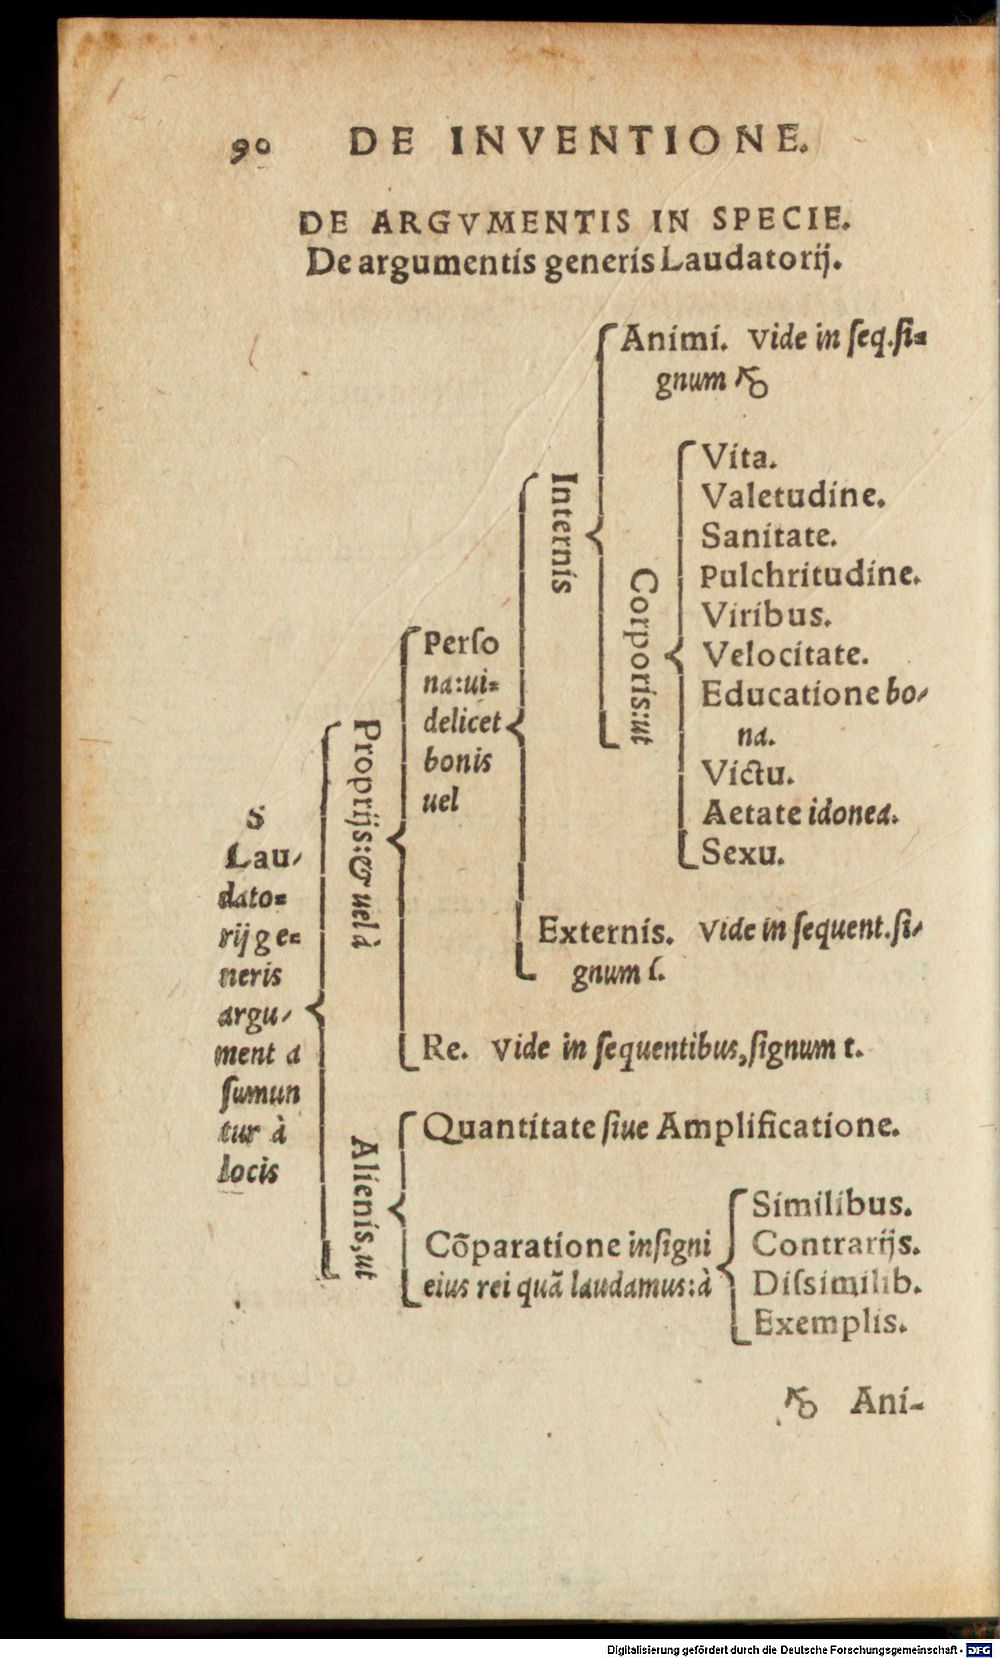 90 DE INVENTIONE.
DE ARGVMENTIS IN SPECIE.
De argumentis generis Laudatorij.
S
Lau-
dato-
rij ge-
neris
argu-
menta
ſumun
tur à
locis
Proprijs: & uel à
Perſo
na: ui-
delicet
bonis
uel
Internis
Animi. Vide in ſeq. ſi-
gnum ♂
Corporis: ut
Vita.
Valetudine.
Sanitate.
Pulchritudine.
Viribus.
Velocitate.
Educatione bo-
na.
Victu.
Aetate idonea.
Sexu.
Externis. Vide in ſequent. ſi-
gnum ſ.
Re. Vide in ſequentibus, ſignum t.
Alienis, ut
Quantitate ſiue Amplificatione.
Cõparatione inſigni
eius rei quã laudamus: à
Similibus.
Contrarijs.
Diſsimilib.
Exemplis.
♂ Ani-
Digitalisierung gefördert durch die Deutsche Forschungsgemeinschaft - DFG